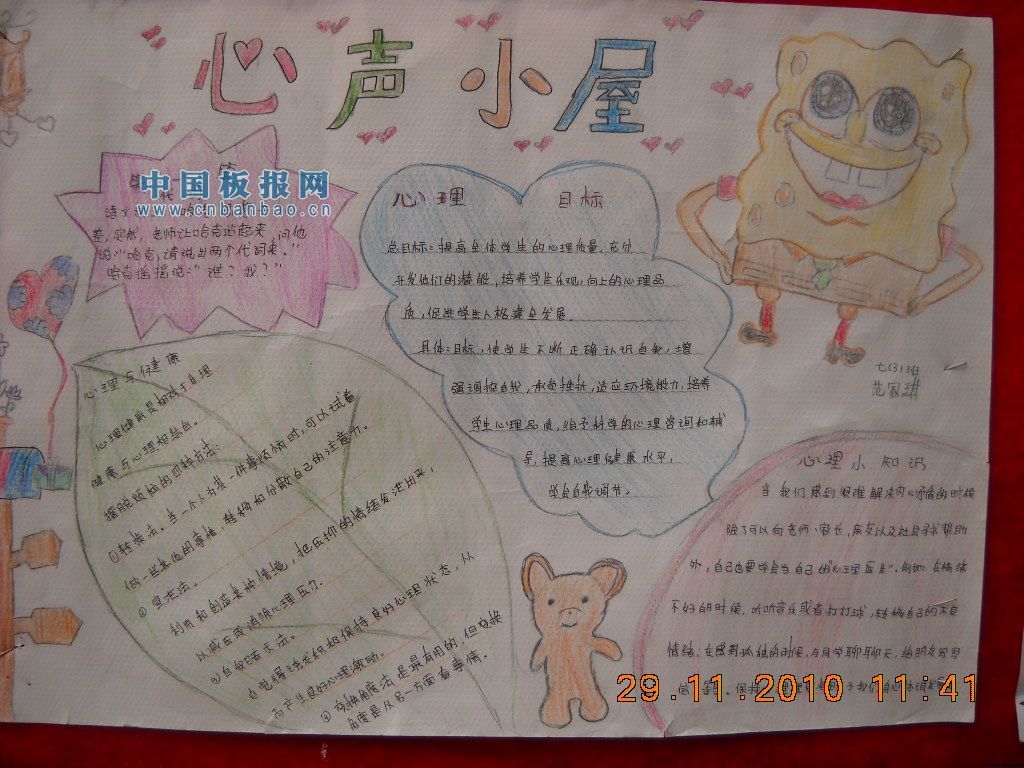 心声小屋
中国板报网
www.cnbanbao.cn
语文
差,突然,老师让哈克站起来,问他
说:“哈克,请说出两个代词来。”
哈克摇摇说:“谁?我?”
心理 目标
总目标:提高全体学生的心理质量,充分
开发他们的潜能,培养学生乐观,向上的心理品
质,促进学生人格健全发展。
具体:目标,使学生不断正确认识自我,增
强调控自我,承受挫折,适应环境能力,培养
学生心理品质,给予科学的心理咨询和辅
导,提高心理健康水平,
学会自我调节。
七(3)班
范家琪
心理与健康
心理健康是相对于生理
健康与心理相结合。
摆脱烦恼的四种方法:
①转换法。当一个人为某一件事烦恼时,可以试着
做一些其他的事情,转移和分散自己的注意力。
②宣泄法。
利用和创造某种情境,把压抑的情绪发泄出来,
以减压或消除心理压力。
③自我暗示法。
自觉得法积极保持良好心理状态,从
而产生良好心理激励。
④变换角度法是最有用的,但变换
角度是从另一方面看事情。
心理小知识
当我们感到很难解决内心矛盾的时候
除了可以向老师、家长,亲友以及社会寻求帮助
外,自己也要学会当自己的“心理医生”.例如:在情绪
不好的时候,听听音乐或者打打球,转移自己的不良
情绪,在感到孤独的时候,与同学聊聊天,给朋友写写
信等,保持
29.11.2010 11:41